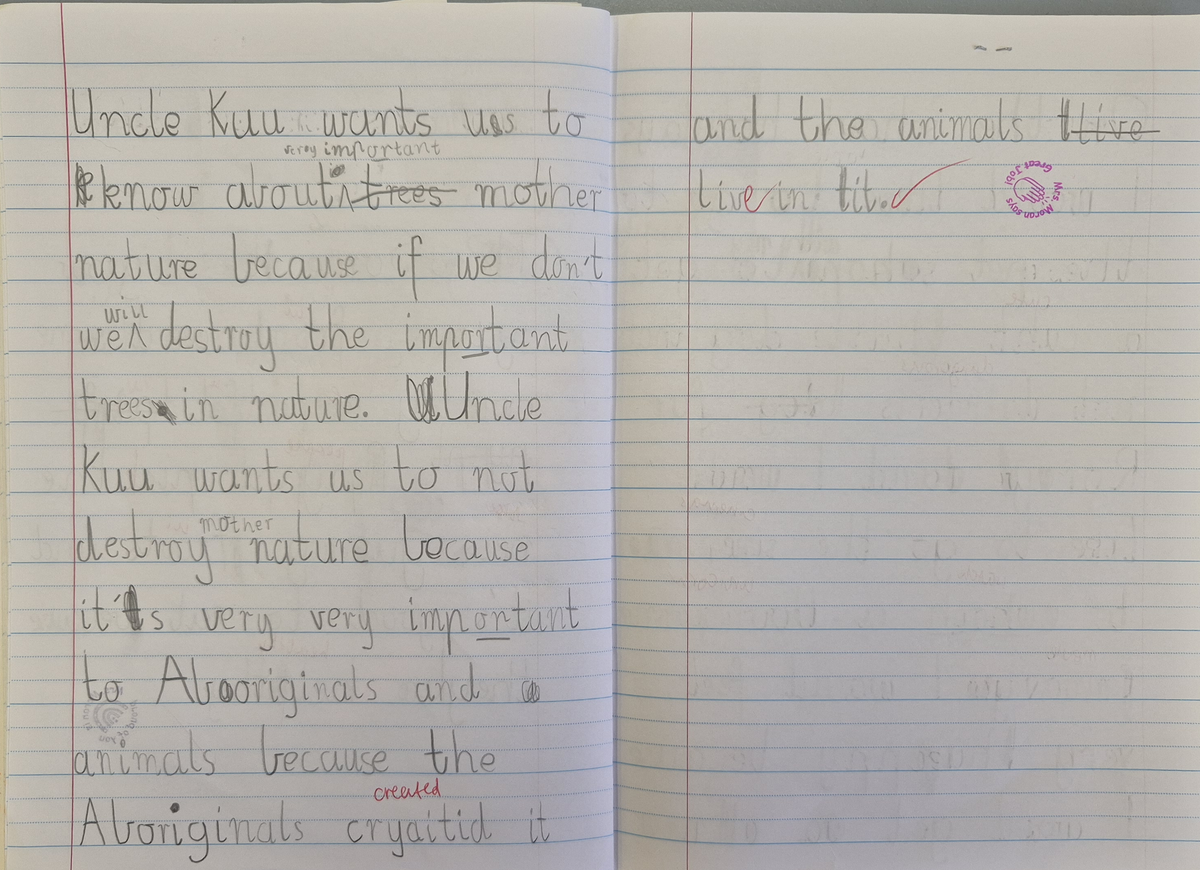 Uncle Kuu wants us to
veroy important
know about ^ trees mother
nature because if we don't
will
we ^ destroy the important
trees in nature. Uncle
Kuu wants us to not
mother
destroy nature because
it's very very important
to Abooriginals and a
animals because the
created
Aboriginals cryaitid it
and the animals live
live in it.
Mrs. Moran says
Great Job!